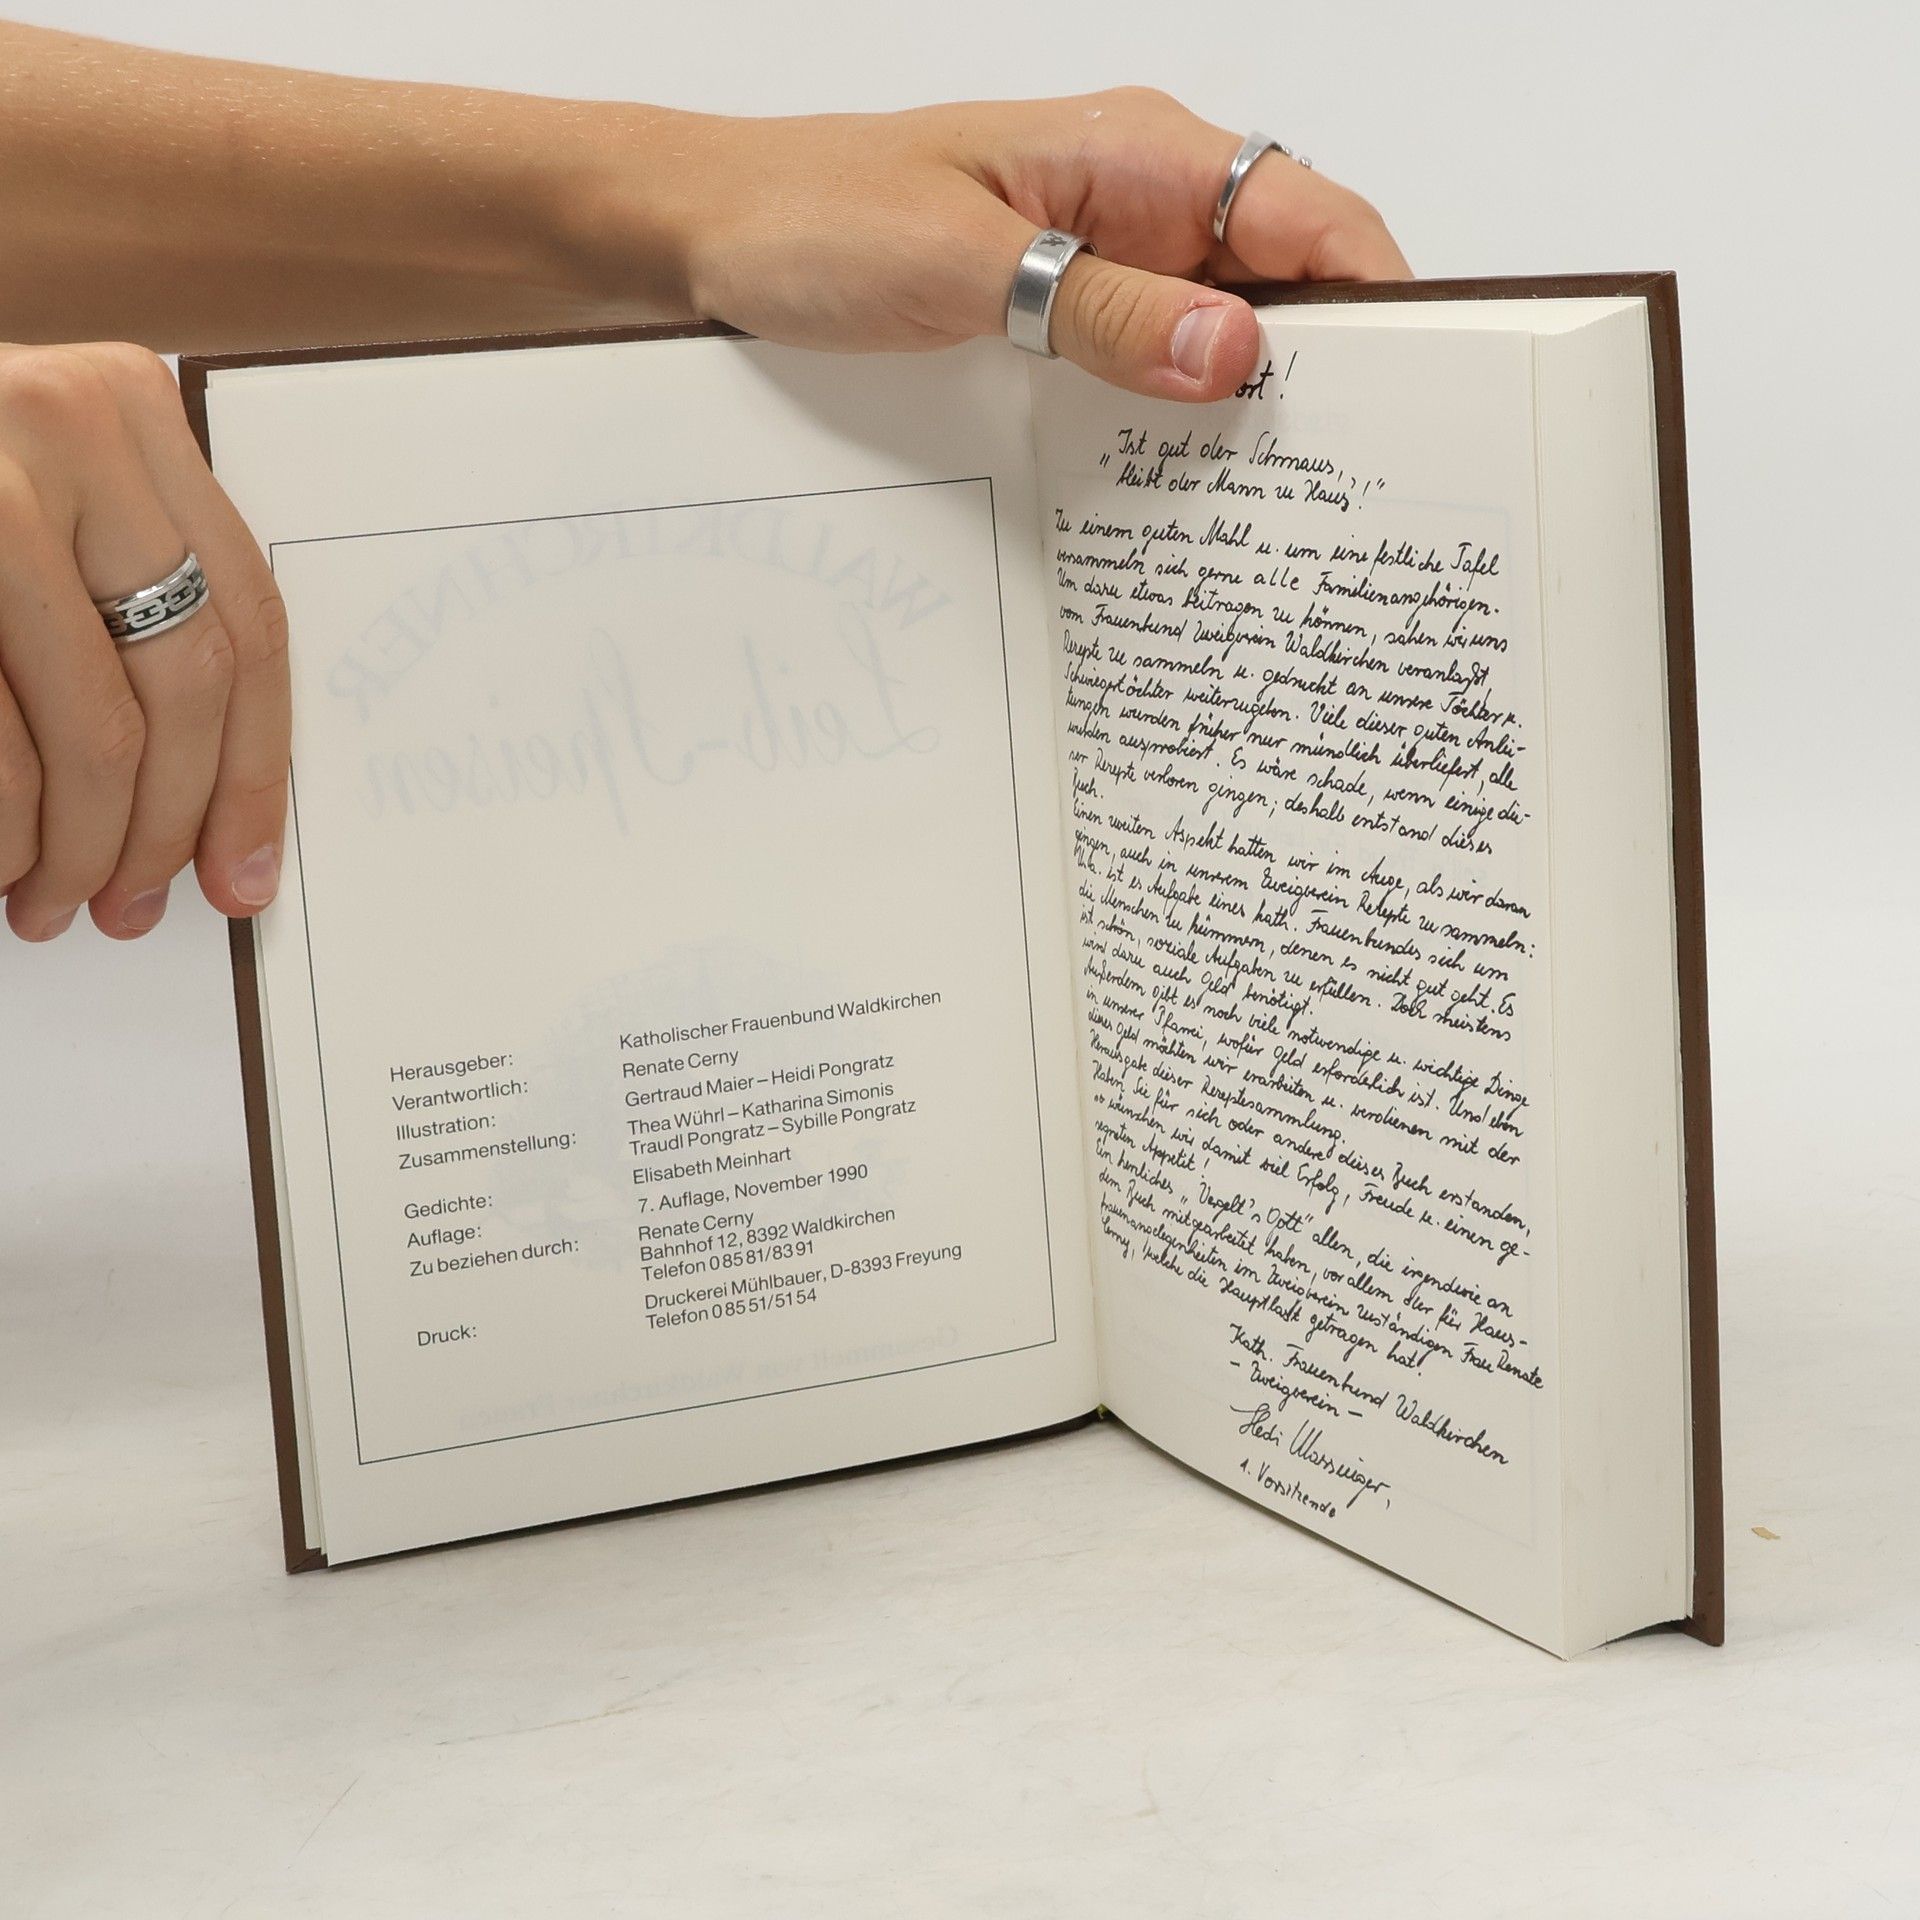 Herausgeber: Katholischer Frauenbund Waldkirchen
Verantwortlich: Renate Cerny
Illustration: Gertraud Maier – Heidi Pongratz
Zusammenstellung: Thea Wührl – Katharina Simonis
Traudl Pongratz – Sybille Pongratz
Gedichte: Elisabeth Meinhart
Auflage: 7. Auflage, November 1990
Zu beziehen durch: Renate Cerny
Bahnhof 12, 8392 Waldkirchen
Telefon 0 85 81/83 91
Druck: Druckerei Mühlbauer, D-8393 Freyung
Telefon 0 85 51/51 54
ort!
„Ist gut der Schmaus,
bleibt der Mann zu Haus'!“
Zu einem guten Mahl u. um eine festliche Tafel
versammeln sich gerne alle Familienangehörigen.
Um dazu etwas beitragen zu können, sahen wir uns
vom Frauenbund Zweigverein Waldkirchen veranlaßt,
Rezepte zu sammeln u. gedruckt an unsere Töchter u.
Schwiegertöchter weiterzugeben. Viele dieser guten Anlei-
tungen wurden früher nur mündlich überliefert, alle
wurden ausprobiert. Es wäre schade, wenn einige die-
ser Rezepte verloren gingen; deshalb entstand dieses
Buch.
Einen zweiten Aspekt hatten wir im Auge, als wir daran
gingen, auch in unserem Zweigverein Rezepte zu sammeln:
U. a. ist es Aufgabe eines kath. Frauenbundes sich um
die Menschen zu kümmern, denen es nicht gut geht. Es
ist schön, soziale Aufgaben zu erfüllen. Doch meistens
wird dazu auch Geld benötigt.
Außerdem gibt es noch viele notwendige u. wichtige Dinge
in unserer Pfarrei, wofür Geld erforderlich ist. Und eben
dieses Geld möchten wir erarbeiten u. verdienen mit der
Herausgabe dieser Rezeptesammlung.
Haben Sie für sich oder andere dieses Buch erstanden,
so wünschen wir damit viel Erfolg, Freude u. einen ge-
segneten Appetit!
Ein herzliches „Vergelt's Gott“ allen, die irgendwie an
dem Buch mitgearbeitet haben, vor allem der für Haus-
frauenangelegenheiten im Zweigverein zuständigen Frau Renate
Cerny, welche die Hauptlast getragen hat!
Kath. Frauenbund Waldkirchen
- Zweigverein -
Hedi
1. Vorsitzende